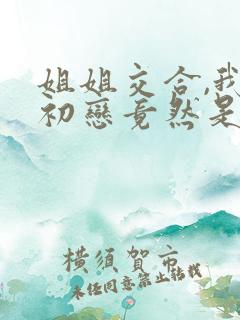 姐姐交合,我
初戀竟然是
橫須賀市
未经同意禁止转载